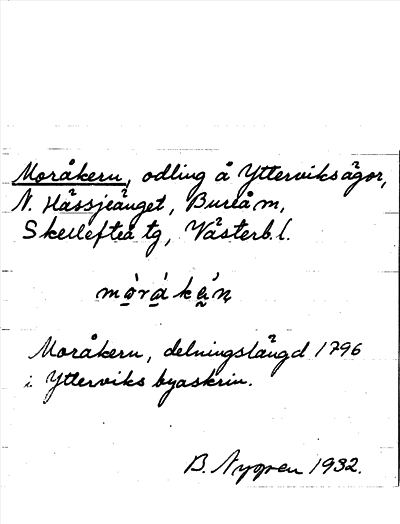 Moråkern, odling å Ytterviksägor,
N. Hässjeänget, Bureå m,
Skellefteå tg, Västerb. l.
Moråkern, delningslängd 1796
i Ytterviks byaskrin.
B. Nygren 1932.